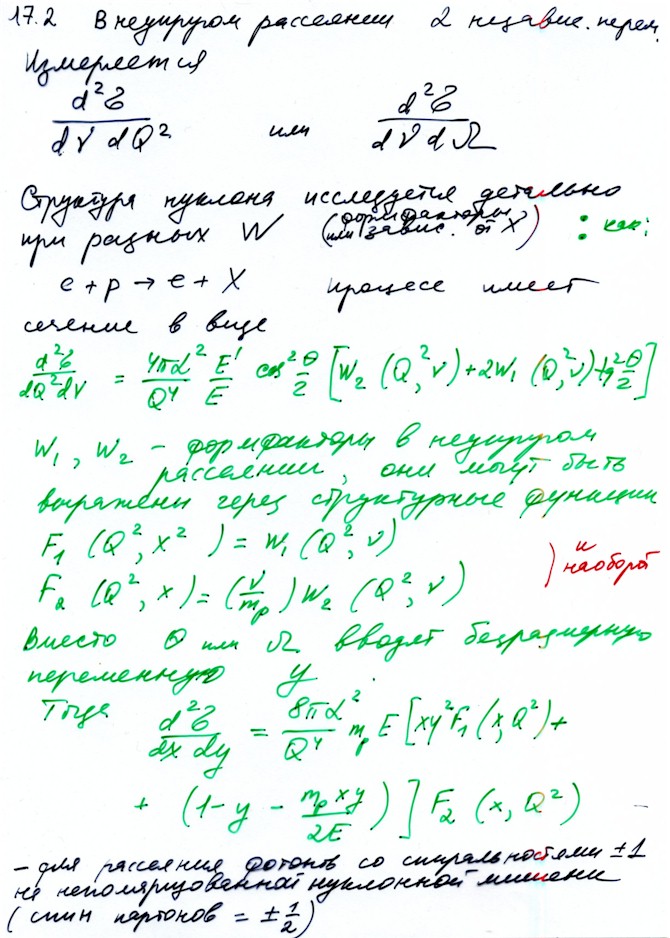 17.2 В неупругом рассеянии 2 независ. перем.
Измеряется
d²σ / dν dQ² или d²σ / dν dΩ
Структура нуклона исследуется детально
при разных W (формфакторы или завис. от X) : как:
e + p → e + X процесс имеет
сечение в виде
d²σ / dQ²dν = 4πα² / Q⁴ E' / E cos² θ/2 [W₂ (Q², ν) + 2W₁ (Q², ν) tg² θ/2]
W₁, W₂ – формфакторы в неупругом
рассеянии, они могут быть
выражены через структурные функции
F₁ (Q², x²) = W₁ (Q², ν)
F₂ (Q², x) = (ν/mₚ) W₂ (Q², ν) ) и наоборот
Вместо θ или Ω вводят безразмерную
переменную y.
Тогда d²σ / dx dy = 8πα² / Q⁴ mₚ E [xy² F₁ (x, Q²) +
+ (1 - y - mₚ x y / 2E) ] F₂ (x, Q²)
– для рассеяния фотонов со спиральностями ±1
на неполяризованной нуклонной мишени
(спин партонов = ± 1/2)